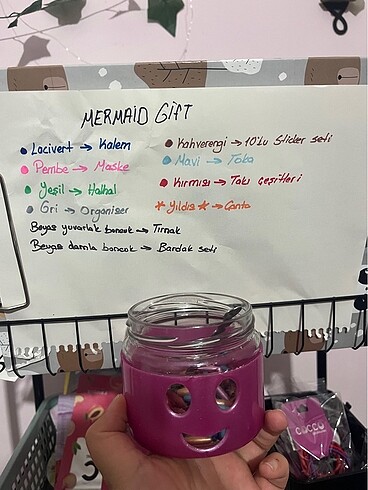 MERMAID GIFT
• Lacivert → Kalem
• Pembe → Maske
• Yeşil → Halhal
• Gri → Organiser
Beyaz yuvarlak boncuk → Tırnak
Beyaz damla boncuk → Bardak seti
• Kahverengi → 10'lu Slider seti
• Mavi → Toka
• Kırmızı → Takı Çeşitleri
* Yıldız * → Çanta
CUCCU